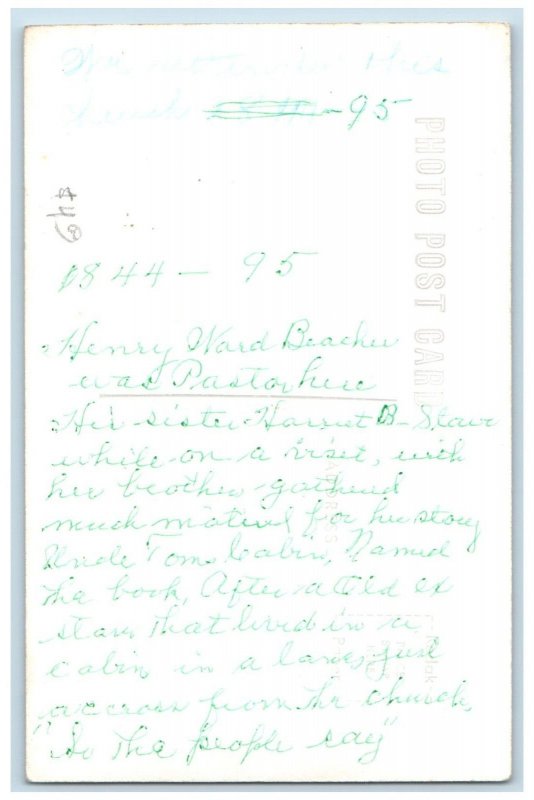 We attended this
church -95
$4.00
1844 - 95
Henry Ward Beacher
was Pastor here
His sister Harriet B- Stowe
while on a viset, with
her brother gathered
much materil for her story
Uncle Toms Cabin, Named
the book, After a old ex
slave that lived in a
cabin in a lane, just
accross from the church,
"So the people say"
PHOTO POST CARD
ADDRESS
Place
Kodak
Here